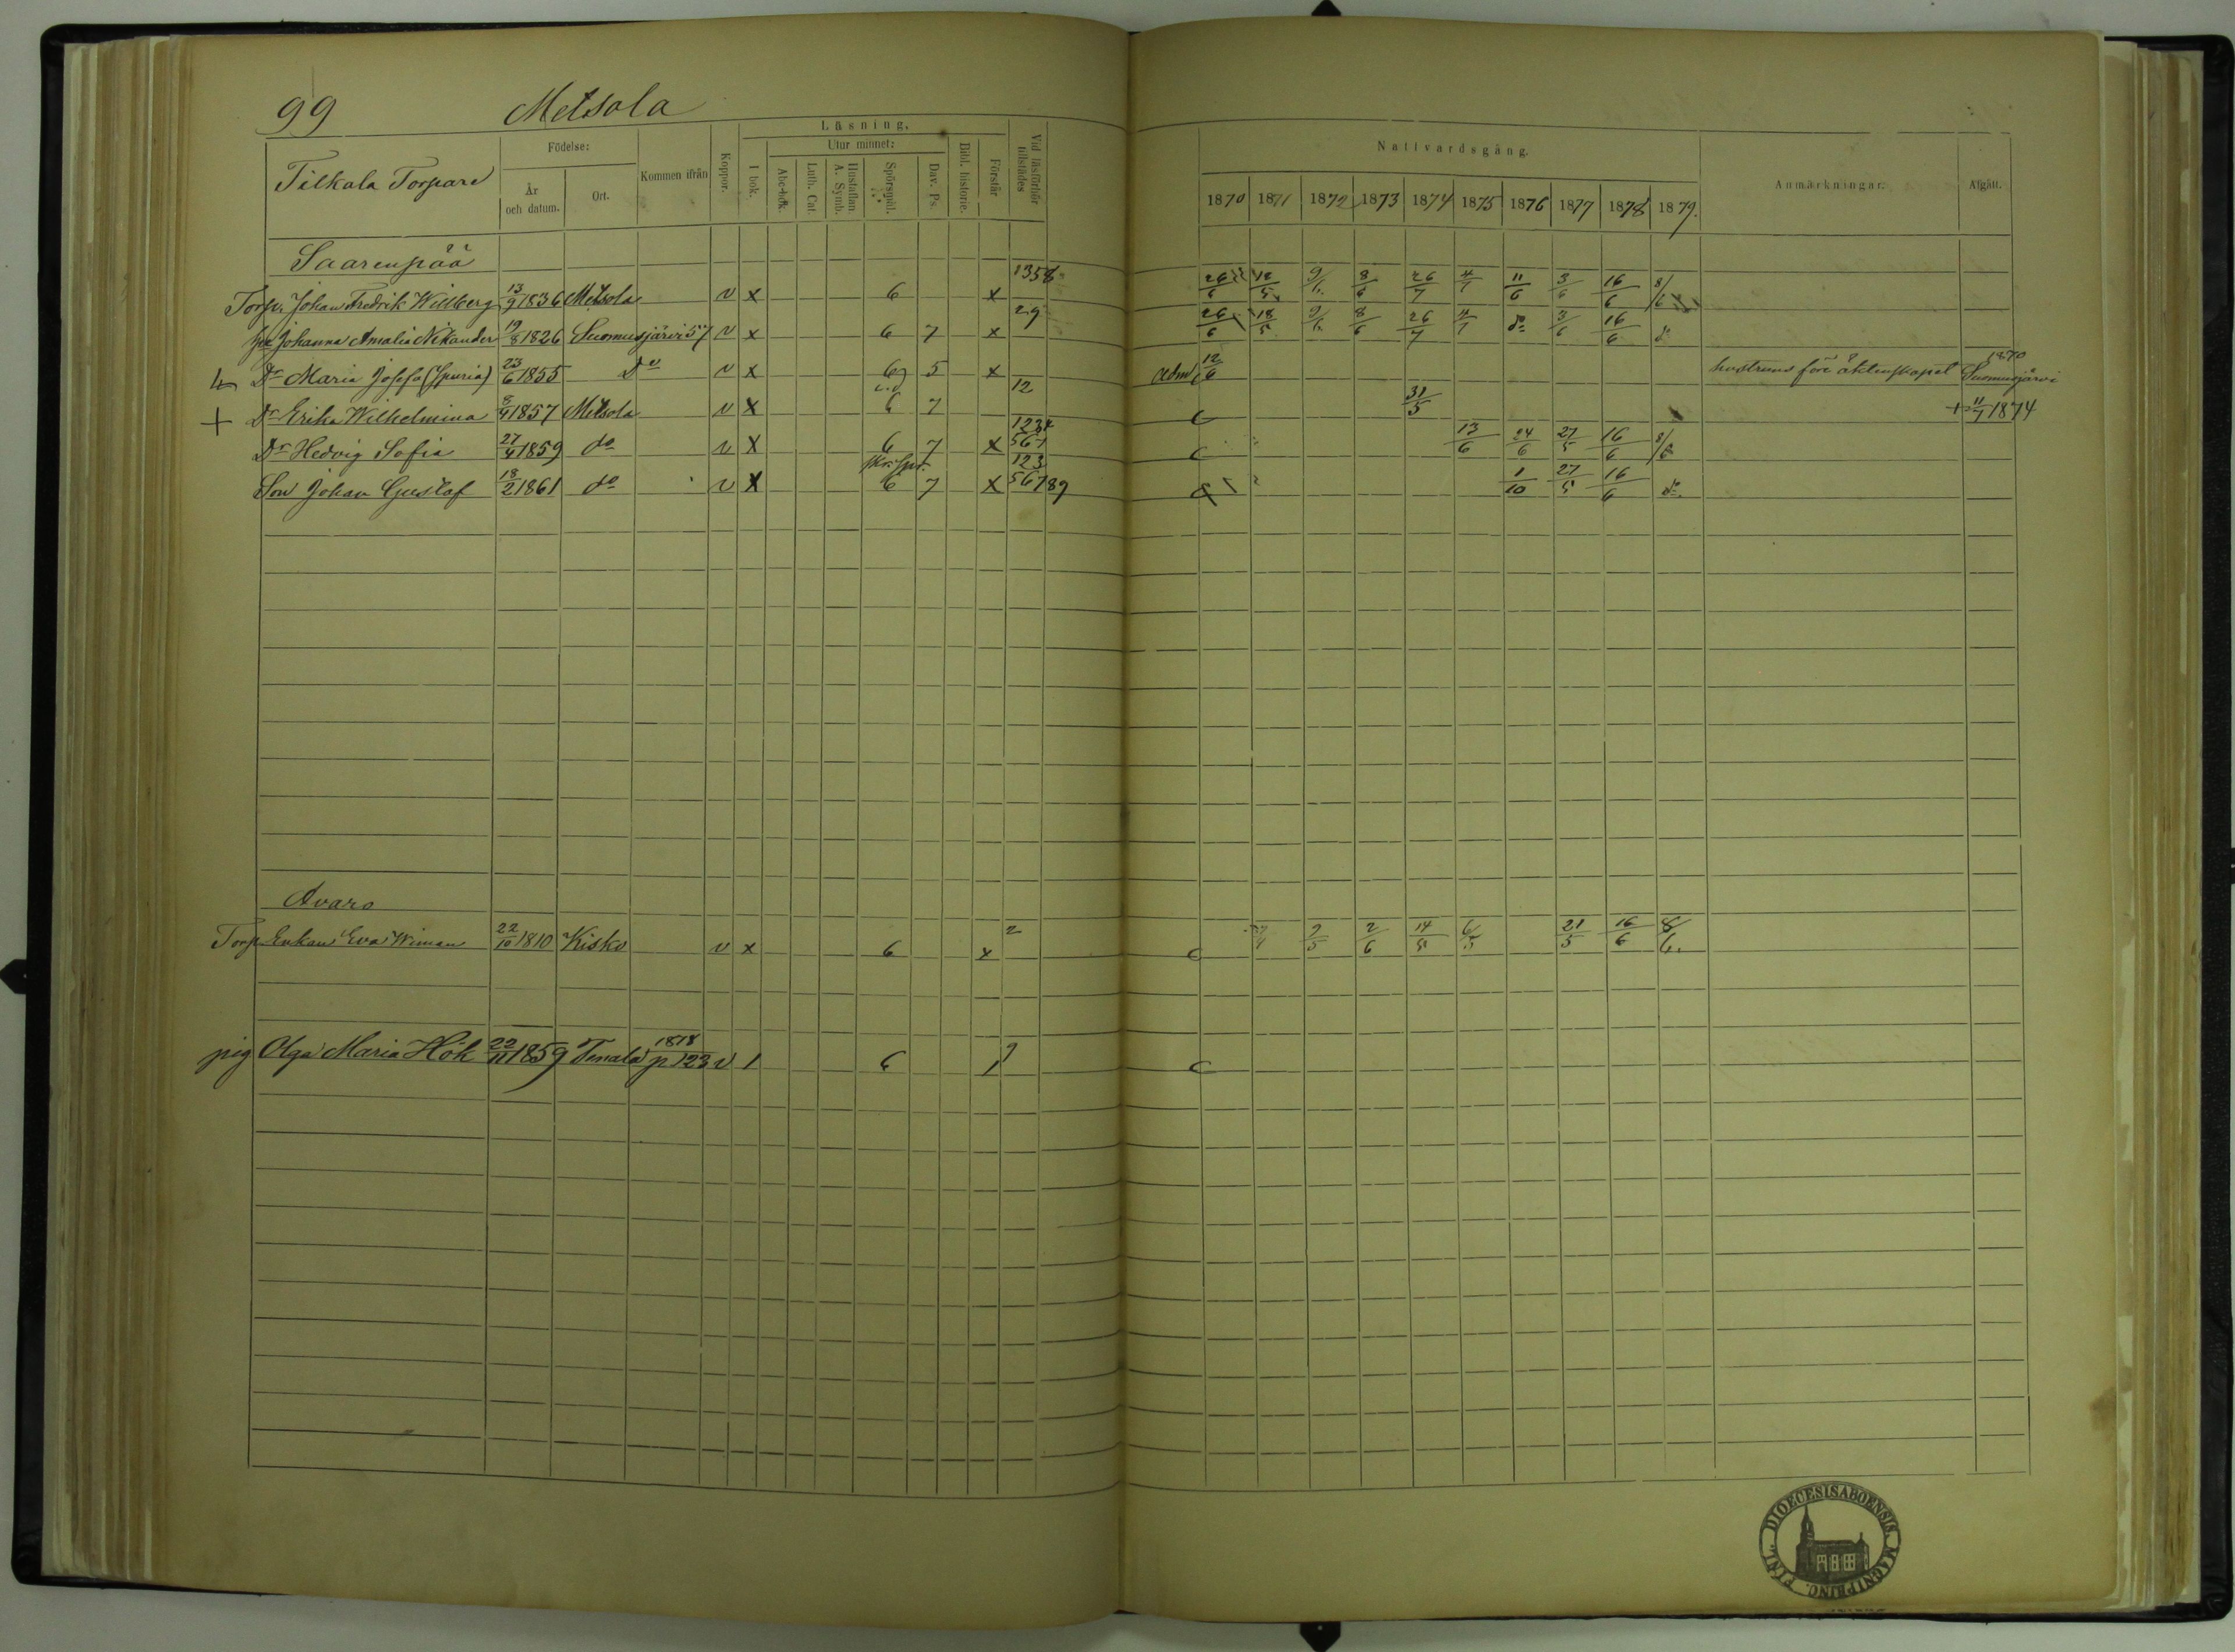 99 Metsola
Tilkala Torpare Födelse: År och datum. Ort. Kommen ifrån Koppor. Läsning. I bok. Utur minnet: Abc-bok. Luth. Cat. Hustaflan. A. Symb. Spörsmål. Dav. Ps. Bibl. historie. Förstår Vid läsförhör tillstädes Nattvardsgång. 1870 1871 1872 1873 1874 1875 1876 1877 1878 1879. Anmärkningar: Afgått.
Saarenpää
Torp. Johan Fredrik Willberg 13/9 1836 Metsola v x 6 x 1358 26/6 18/5 9/6 8/6 26/7 4/7 11/6 3/6 16/6 8/6
Johanna Amalia Nikander 19/8 1826 Suomusjärvi 57 v x 6 7 x 29 26/6 18/5 9/6 8/6 26/7 4/7 do 3/6 16/6 do
Dr Maria Josefa (Spuria) 23/6 1855 Do v x 6 5 x adm 12/6 hustruns före äktenskapet 1870 Suomusjärvi
+ Dr Erika Wilhelmina 1857 Metsola v x 6 7 12 c 31/5 + 11/7 1874
Dr Hedvig Sofia 27/4 1859 do v x 6 7 x 1234 567 c 13/6 24/6 27/5 16/6 8/6
Son Johan Gustaf 18/2 1861 do v x 6 7 x 123 56789 1/10 27/5 16/6 do
Avaro
Torp. Enkan Eva Wiman 22/10 1810 Kisko v x 6 x 2 c 9/5 2/6 14/5 6/5 21/5 16/6 8/6.
pig Olga Maria Hök 22/11 1859 Tenala 1878 p 123 v 1 6 1 9 c
DIOECESIS ABOENSIS. MAGNI PRINC. FINL.